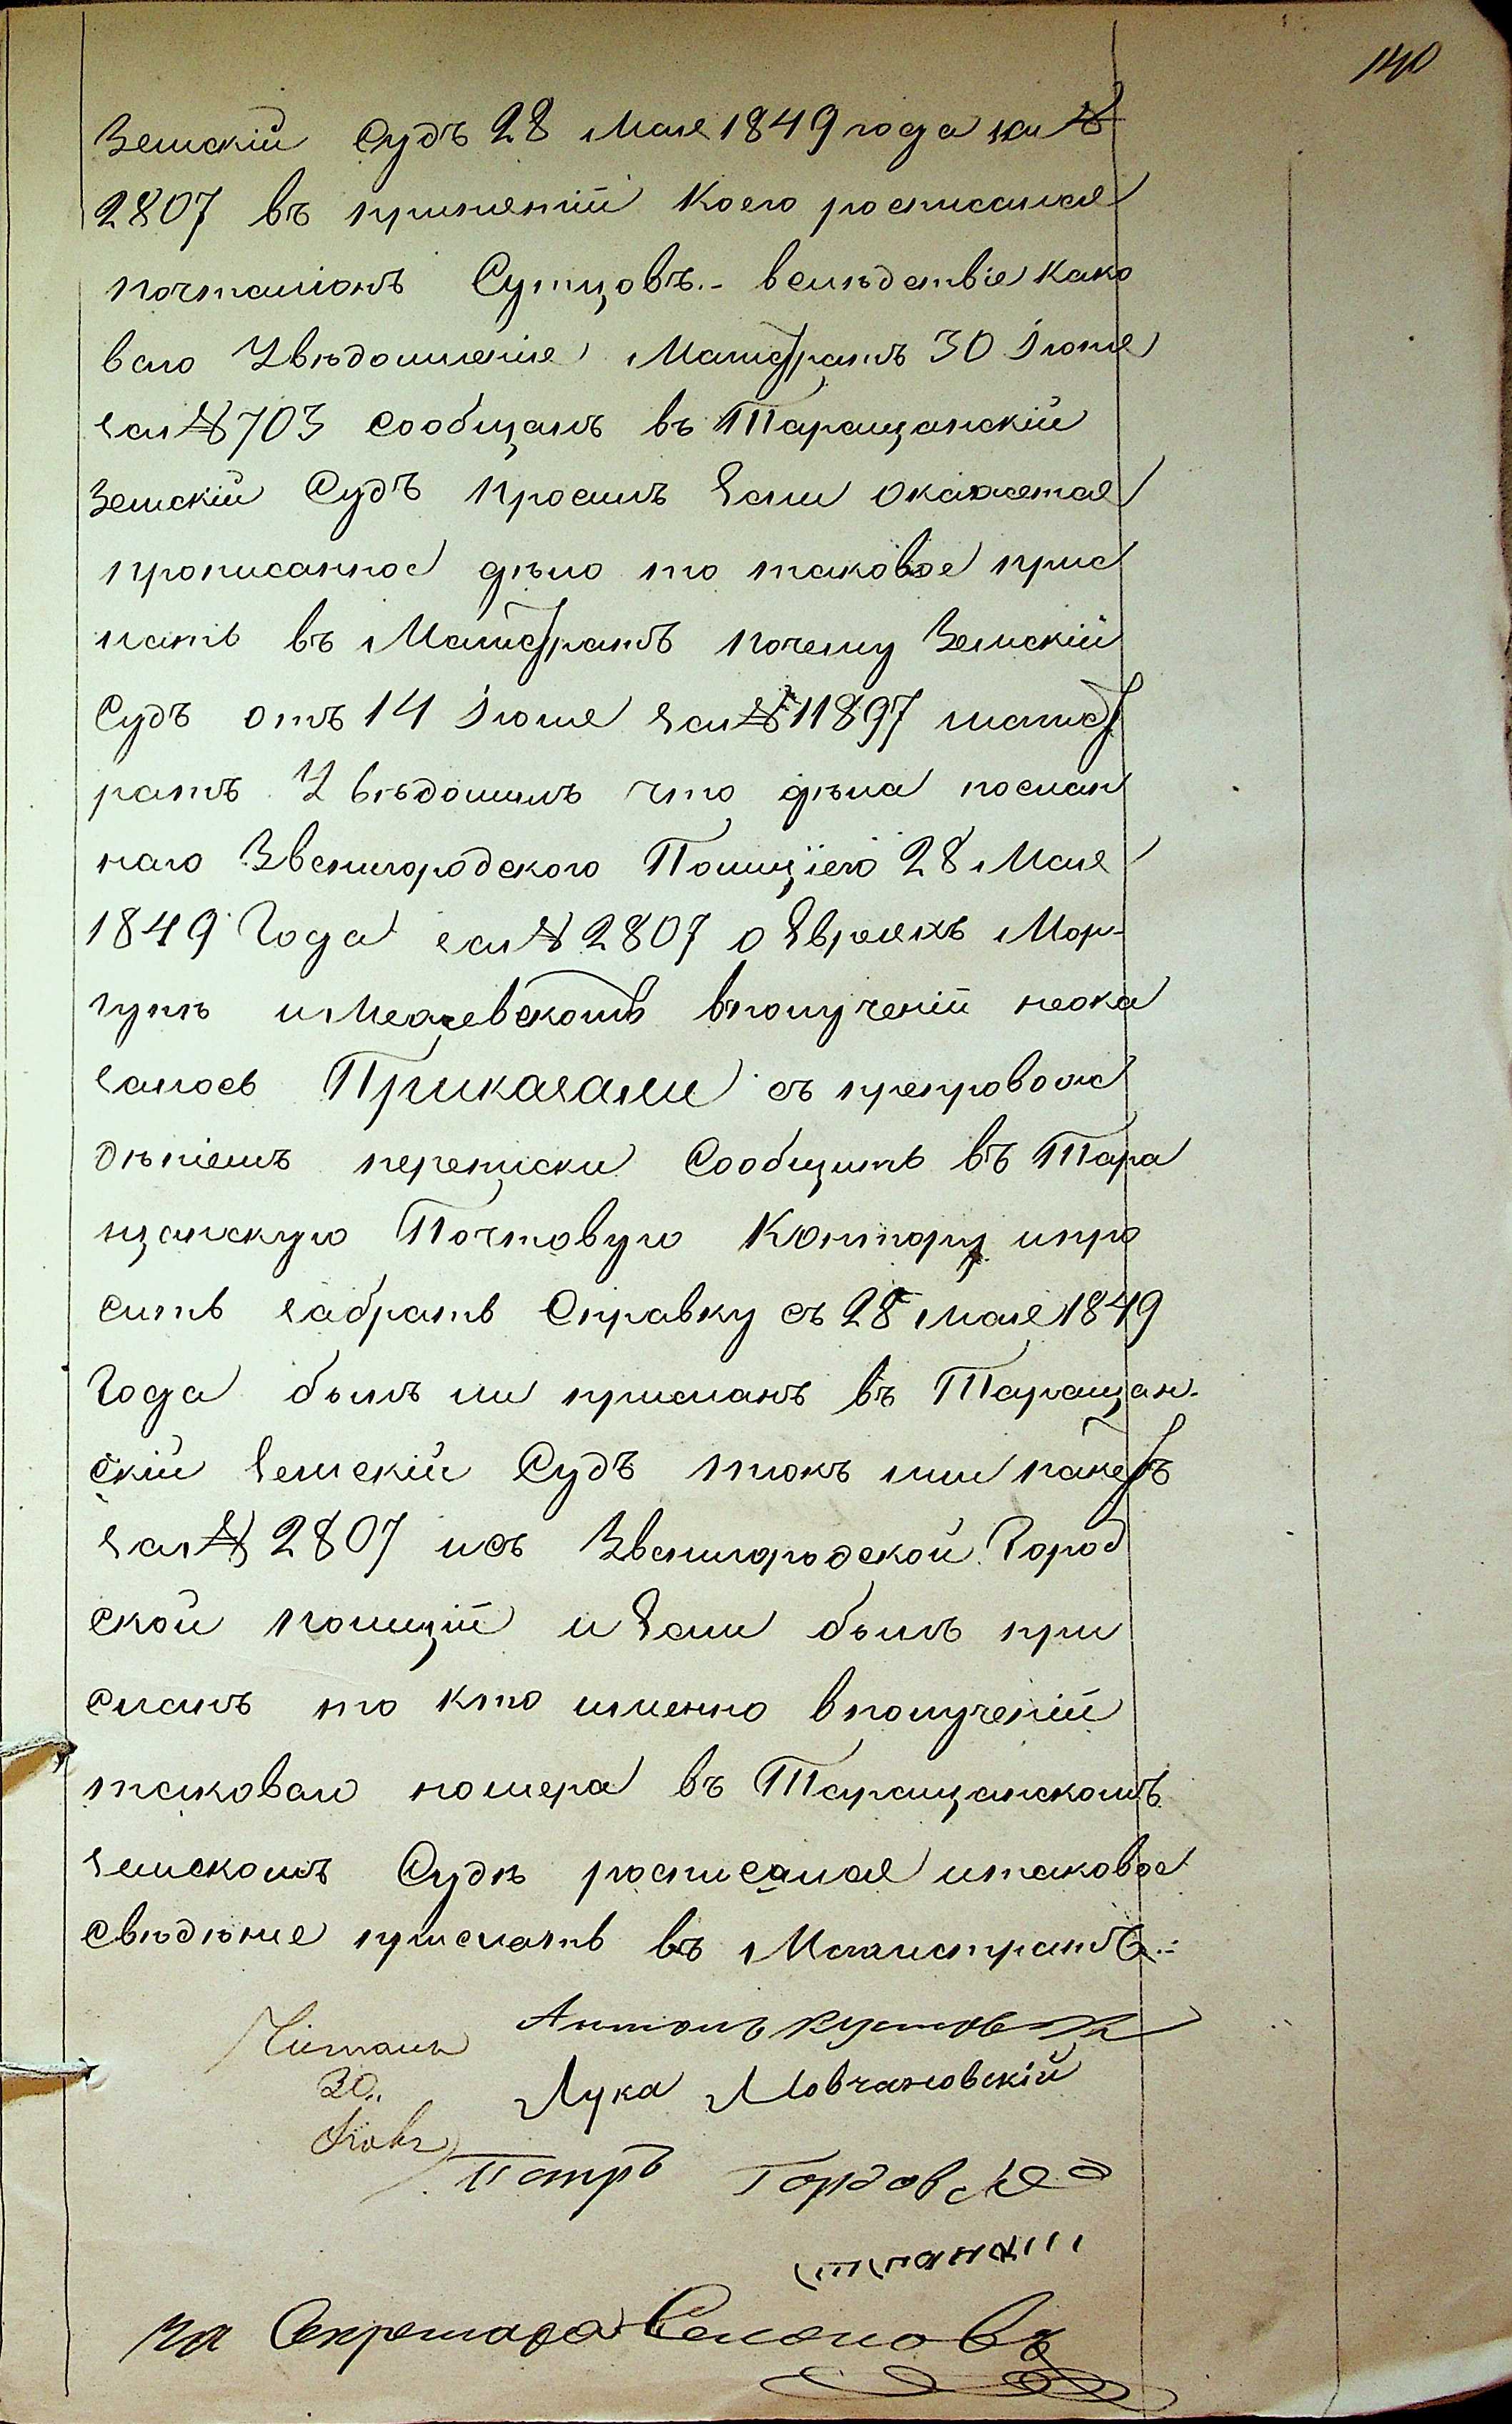 140
Земскій Судъ 28 Мая 1849 года за №
2807 въ принятій коего росписался
почталіонъ Сутцовъ.- вслѣдствіе како
ваго Увѣдомленія Магистратъ 30 Іюня
за № 703 сообщалъ въ Таращанскій
Земскій Судъ просилъ Если окажется
прописанное дѣло то таковое прис
лать въ Магистратъ почему Земскій
Судъ отъ 14 Іюля за № 11897 магист
ратъ Увѣдомилъ что дѣла послан
наго Звенигородского Полиціею 28 Мая
1849 Года за № 2807 о Евреяхъ Мор-
гулѣ и вполученій неока
залось Приказали съ препровож
дѣніемъ переписки Сообщить въ Тара
щанскую Почтовую Контору ипро
сить забрать Справку съ 28 мая 1849
Года былъ ли присланъ въ Таращан-
скій Земскій Судъ тюкъ или пакетъ
за № 2807 изъ Звенигородской Город
ской полицій и Если былъ при
сланъ то кто именно вполученій
таковаго номера въ Таращанскомъ
земскомъ Судѣ росписался итаковое
свѣдѣние прислать въ Магистратъ.
Читалъ
Лука Мовчановскій
Петръ
за Секретаря